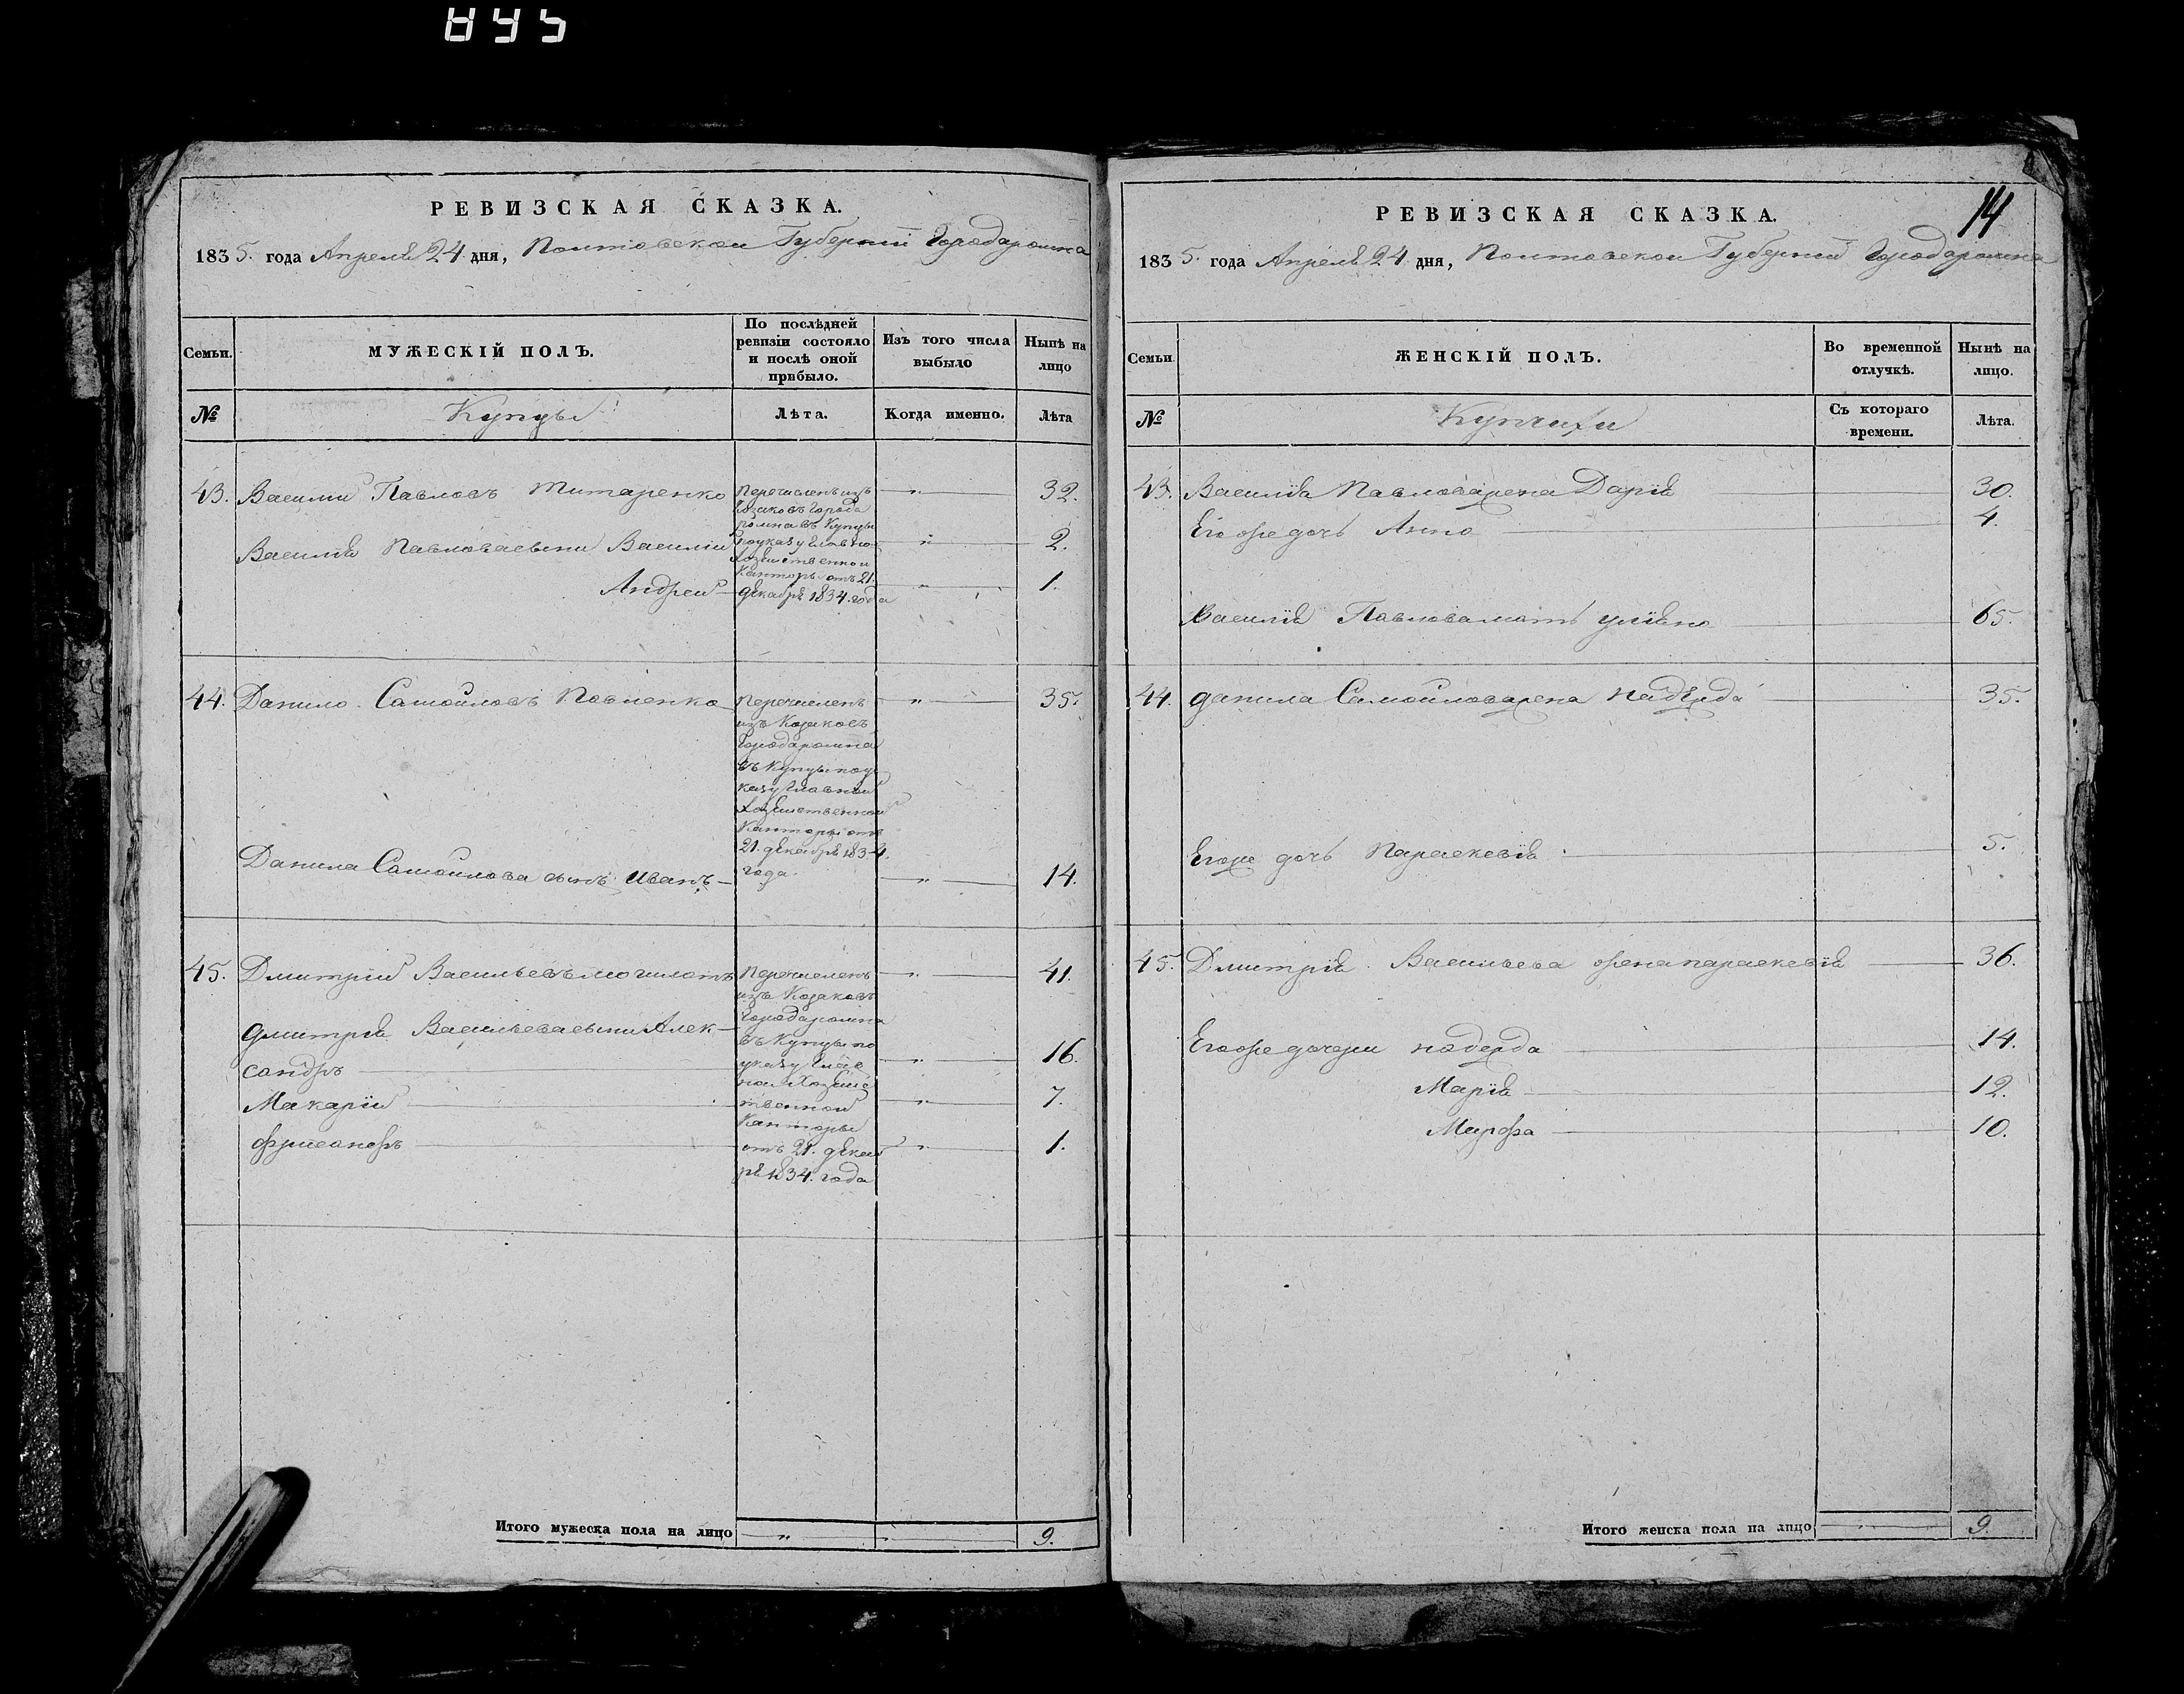 845
РЕВИЗСКАЯ СКАЗКА.
1835. года Апреля 24 дня, Полтовской Губернии Города ромна
Семьи.
МУЖЕСКІЙ ПОЛЪ.
По послѣдней
ревизіи состояло
и послѣ оной
прибыло.
Изъ того числа
выбыло
Нынѣ на
лицо
№
Купцы
Лѣта.
Когда именно.
Лѣта
43. Василий Павловъ Титаренко
Перечисленъ изъ
Козаковъ Города
ромна въ Купцы
по указу Главной
Хозяйственной
Канторы отъ 21.
декабря 1834. года
32.
Василия Павлова сыни Василий
2.
Андрей
1.
44. Данило Самойловъ Павленко
Перечисленъ
изъ Козаковъ
Города ромна
въ Купцы по у
казу Главной
Хозяйственной
Канторы отъ
21. декабря 1834.
года.
35.
Данила Самойлова сынъ Иванъ
14.
45. Дмитрий Васильевъ Могилатъ
Перечисленъ
изъ Козаковъ
Города ромна
въ Купцы по
указу Глав
ной Хозяйс
твенной
Канторы
отъ 21. декаб
ря 1834. года
41.
Дмитрия Васильева сыни Алек
сандръ
16.
Макарий
7.
1.
Итого мужеска пола на лицо
9.
14
РЕВИЗСКАЯ СКАЗКА.
1835. года Апреля 24 дня, Полтовской Губернии Города ромна
Семьи.
ЖЕНСКІЙ ПОЛЪ.
Во временной
отлучкѣ.
Нынѣ на
лицо.
№
Купчихи
Съ котораго
времени.
Лѣта.
43. Василия Павлова жена Дария 30.
Его же дочь Анна 4.
Василия Павлова мать улияна 65.
44. данила Самойлова жена надежда 35.
Его же дочь Параскевия 5.
45. Дмитрия Васильева жена параскевия 36.
Его же дочери надежда 14.
Мария 12.
Марфа 10.
Итого женска пола на лицо
9.